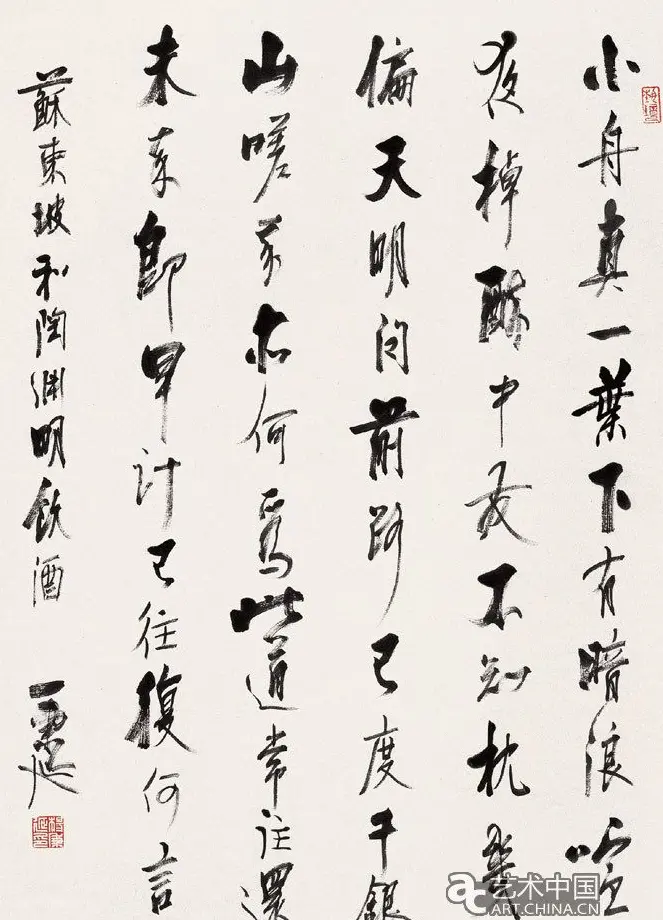 小舟真一葉下有暗浪喧
夜棹醉中發不知枕几
偏天明問前路已度千銀
山嗟我亦何為此道常往還
未來即早計已往復何言
蘇東坡和陶淵明飲酒
艺术中国
ART.CHINA.CN